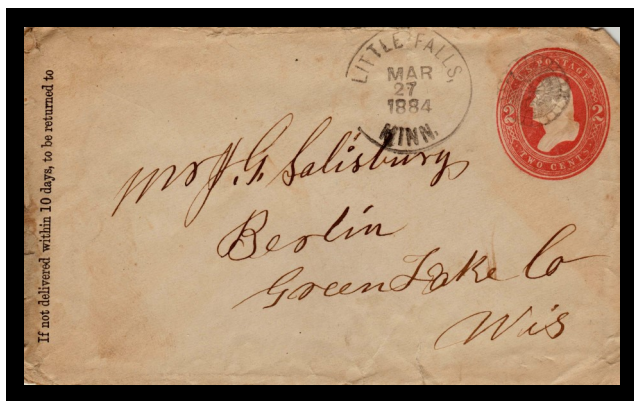 If not delivered within 10 days, to be returned to
LITTLE FALLS,
MAR
27
1884
MINN.
U.S. POSTAGE
2 2
TWO CENTS
Mr J. G. Salisbury
Berlin
Green Lake Co
Wis